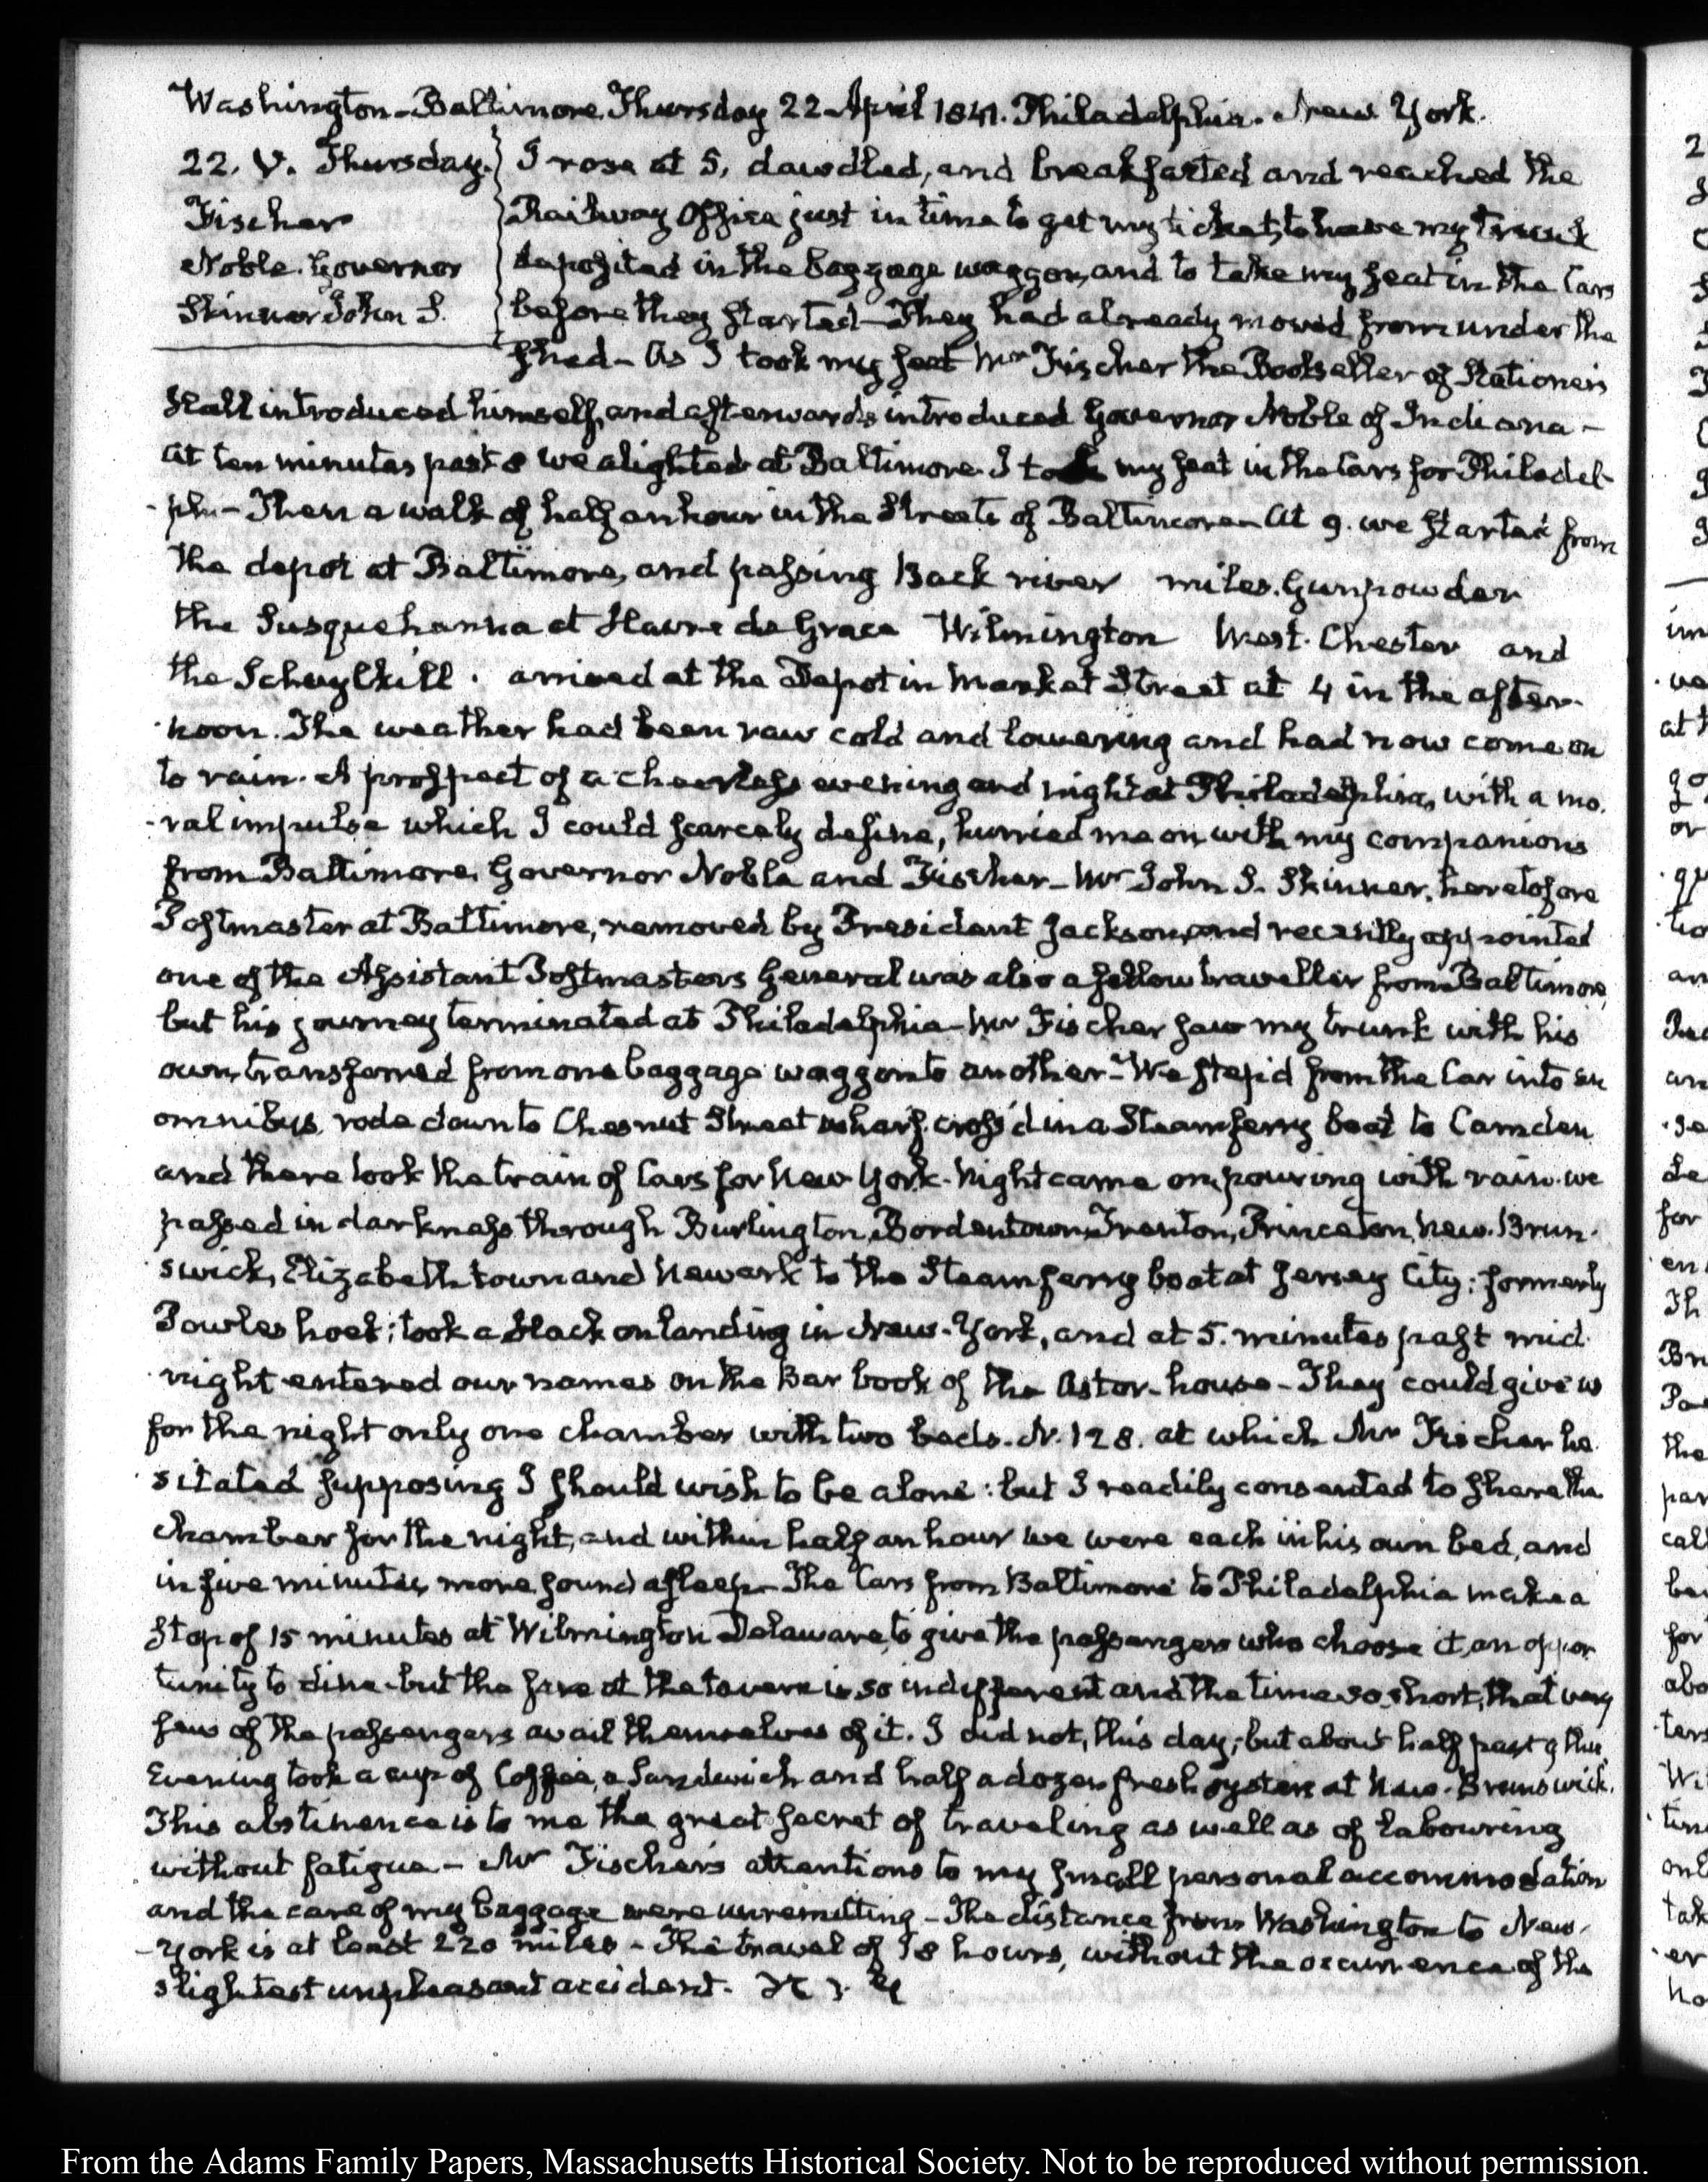 Washington-Baltimore. Thursday 22 April 1841. Philadelphia. New York.
22. V. Thursday.
Fischer
Noble. Governor
Skinner John S.
I rose at 5, dawdled, and breakfasted and reached the
Railway Office just in time to get my ticket, to have my trunk
deposited in the baggage waggon, and to take my seat in the Cars
before they started — They had already moved from under the
shed — As I took my seat Mr Fischer the Bookseller of Stationers
Hall introduced himself, and afterwards introduced Governor Noble of Indiana —
At ten minutes past 8 we alighted at Baltimore. I took my seat in the Cars for Philadel-
-phi — Then a walk of half an hour in the Streets of Baltimore — At 9. we started from
the depot at Baltimore, and passing Back river miles. Gunpowder
the Susquehanna at Havre de Grace Wilmington West. Chester and
the Schuylkill. arrived at the Depot in Market Street at 4 in the after-
-noon. The weather had been raw cold and lowering and had now come on
to rain. A prospect of a cheerless evening and night at Philadelphia, with a mo-
-ral impulse which I could scarcely define, hurried me on with my companions
from Baltimore, Governor Noble and Fischer — Mr John S. Skinner, heretofore
Postmaster at Baltimore, removed by President Jackson, and recently appointed
one of the Assistant Postmasters General was also a fellow traveller from Baltimore,
but his journey terminated at Philadelphia — Mr Fischer saw my trunk with his
own, transferred from one baggage waggon to another — We step'd from the Car into an
omnibus, rode down to Chesnut Street wharf, cross'd in a Steam ferry boat to Camden
and there took the train of Cars for New York. Night came on, pouring with rain. we
passed in darkness through Burlington, Bordentown, Trenton, Princeton, New-Brun-
swick, Elizabeth town and Newark to the Steam ferry boat at Jersey City; formerly
Powles hoek; took a Hack on landing in New-York, and at 5. minutes past mid-
-night entered our names on the Bar book of the Astor-house — They could give us
for the night only one chamber with two beds. N. 128. at which Mr Fischer he-
sitated supposing I should wish to be alone: but I readily consented to share the
chamber for the night, and within half an hour we were each in his own bed, and
in five minutes more sound asleep — The Cars from Baltimore to Philadelphia make a
stop of 15 minutes at Wilmington Delaware, to give the passengers who choose it, an oppor-
tunity to dine. but the fare at the tavern is so indifferent and the time so short, that very
few of the passengers avail themselves of it. I did not, this day; but about half past 9 this
Evening took a cup of Coffee, a Sandwich and half a dozen fresh oysters at New-Brunswick.
This abstinence is to me the great secret of traveling as well as of labouring
without fatigue — Mr Fischer's attentions to my small personal accommodation
and the care of my baggage were unremitting — The distance from Washington to New-
-York is at least 220 miles — The travel of 18 hours, without the occurrence of the
slightest unpleasant accident.
From the Adams Family Papers, Massachusetts Historical Society. Not to be reproduced without permission.